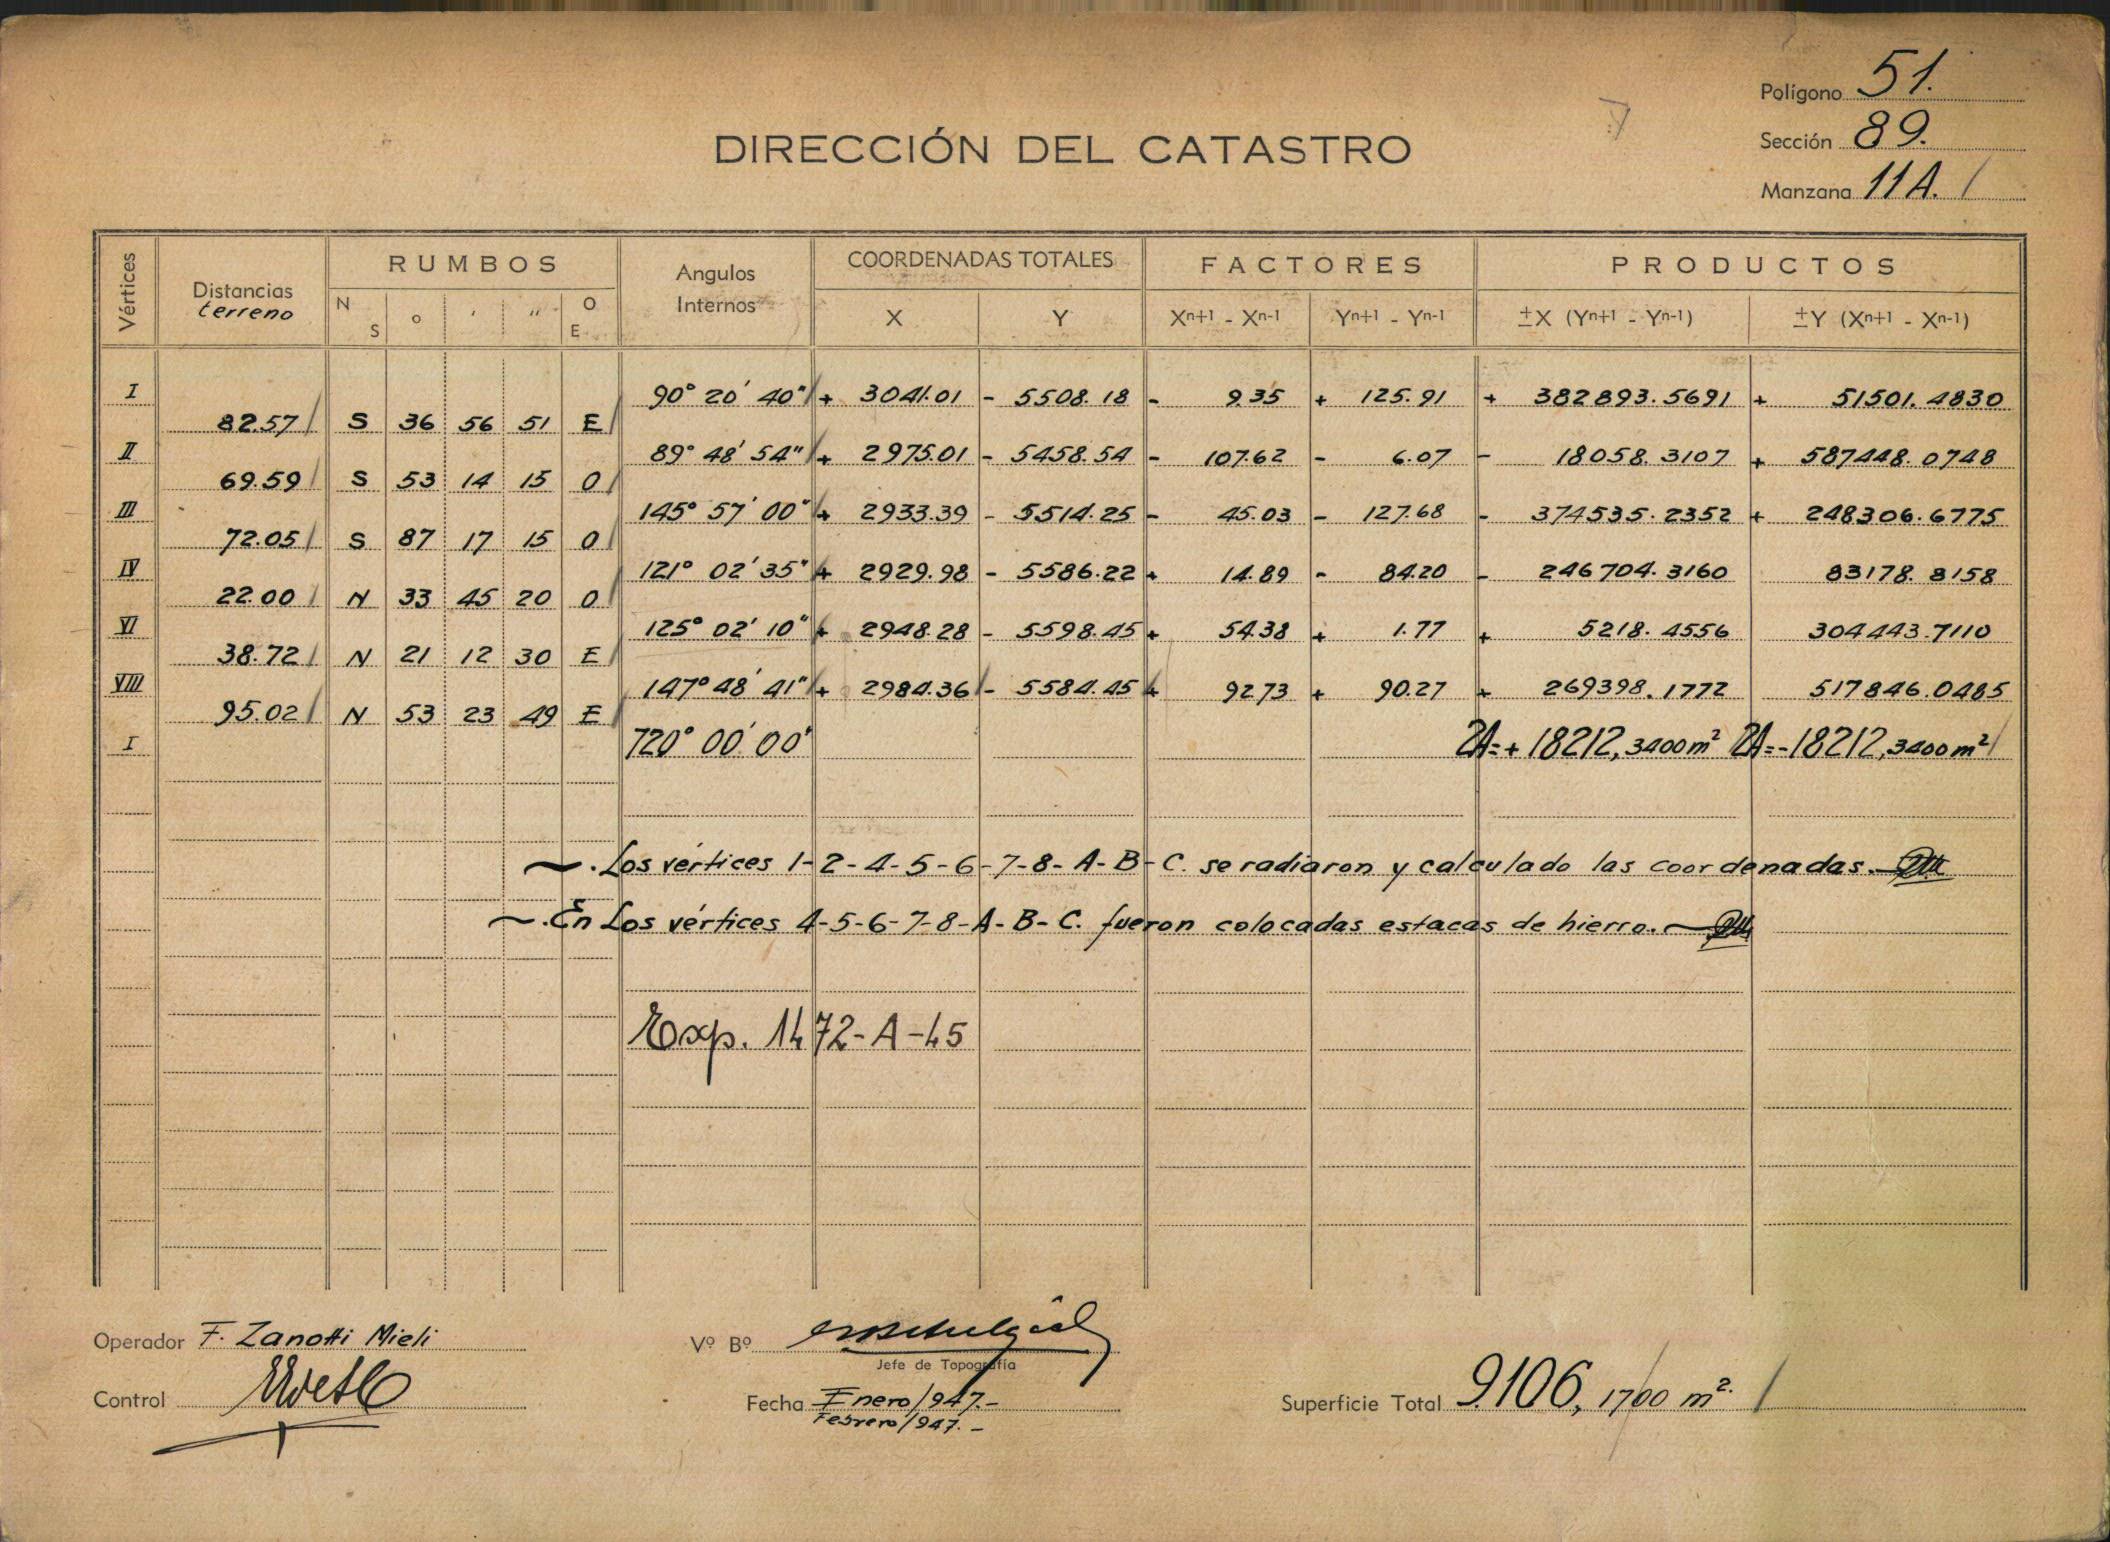 Polígono 51.
Sección 89.
Manzana 11A.
DIRECCIÓN DEL CATASTRO
Vértices
Distancias
terreno
RUMBOS
N S
° ' "
O E
Angulos
Internos
COORDENADAS TOTALES
X
Y
FACTORES
Xn+1 - Xn-1
Yn+1 - Yn-1
PRODUCTOS
±X (Yn+1 - Yn-1)
±Y (Xn+1 - Xn-1)
I 90° 20' 40" + 3041.01 - 5508.18 - 9.35 + 125.91 + 382893.5691 + 51501.4830
82.57 S 36 56 51 E
II 89° 48' 54" + 2975.01 - 5458.54 - 107.62 - 6.07 - 18058.3107 + 587448.0748
69.59 S 53 14 15 O
III 145° 57' 00" + 2933.39 - 5514.25 - 45.03 - 127.68 - 374535.2352 + 248306.6775
72.05 S 87 17 15 O
IV 121° 02' 35" + 2929.98 - 5586.22 + 14.89 - 84.20 - 246704.3160 83178.8158
22.00 N 33 45 20 O
VI 125° 02' 10" + 2948.28 - 5598.45 + 54.38 + 1.77 + 5218.4556 304443.7110
38.72 N 21 12 30 E
VIII 147° 48' 41" + 2984.36 - 5584.45 + 92.73 + 90.27 + 269398.1772 517846.0485
95.02 N 53 23 49 E
I 720° 00' 00" 2A=+18212,3400m² 2A=-18212,3400m²
~. Los vértices 1-2-4-5-6-7-8-A-B-C. se radiaron y calculado las coordenadas.
~. En Los vértices 4-5-6-7-8-A-B-C. fueron colocadas estacas de hierro.
Exp. 1472-A-45
Operador F. Zanotti Mieli
Vº Bº
Jefe de Topografía
Control
Fecha Enero/947.-
Febrero/947.-
Superficie Total 9106,1700 m².